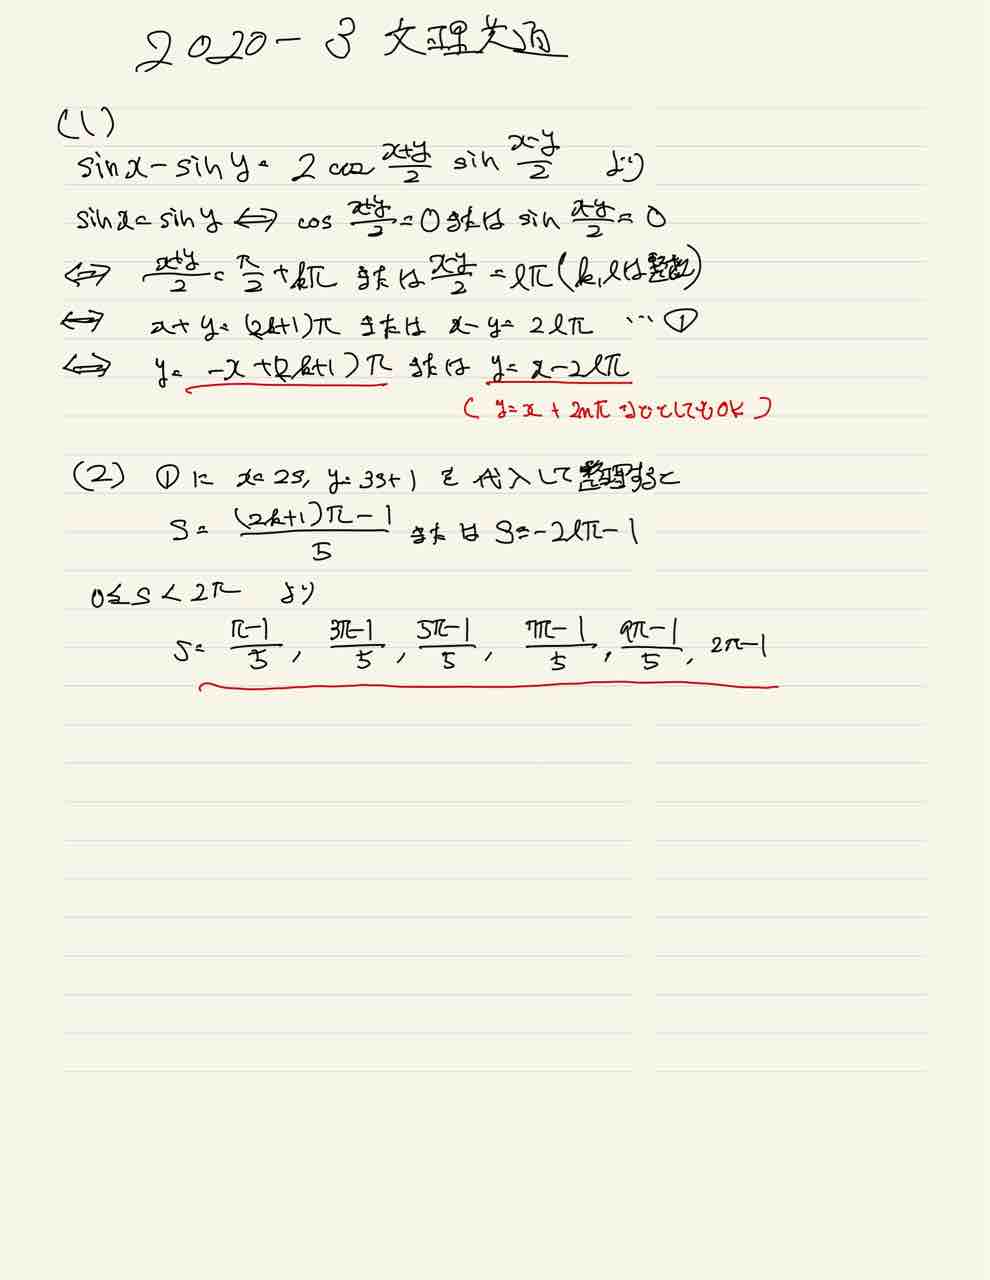 2020-3 文理共通
(1)
sinx-siny= 2 cos (x+y)/2 sin (x-y)/2 より
sinx=siny ⟺ cos (x+y)/2 =0 または sin (x-y)/2 =0
⟺ (x+y)/2 = π/2 +kπ または (x-y)/2 =lπ (k,lは整数)
⟺ x+y=(2k+1)π または x-y=2lπ …①
⟺ y= -x+(2k+1)π または y=x-2lπ
(y=x+2nπ などとしてもok)
(2) ①に x=2s, y=3s+1 を代入して整理すると
S= ((2k+1)π-1)/5 または S=-2lπ-1
0≦s<2π より
s= (π-1)/5, (3π-1)/5, (5π-1)/5, (7π-1)/5, (9π-1)/5, 2π-1